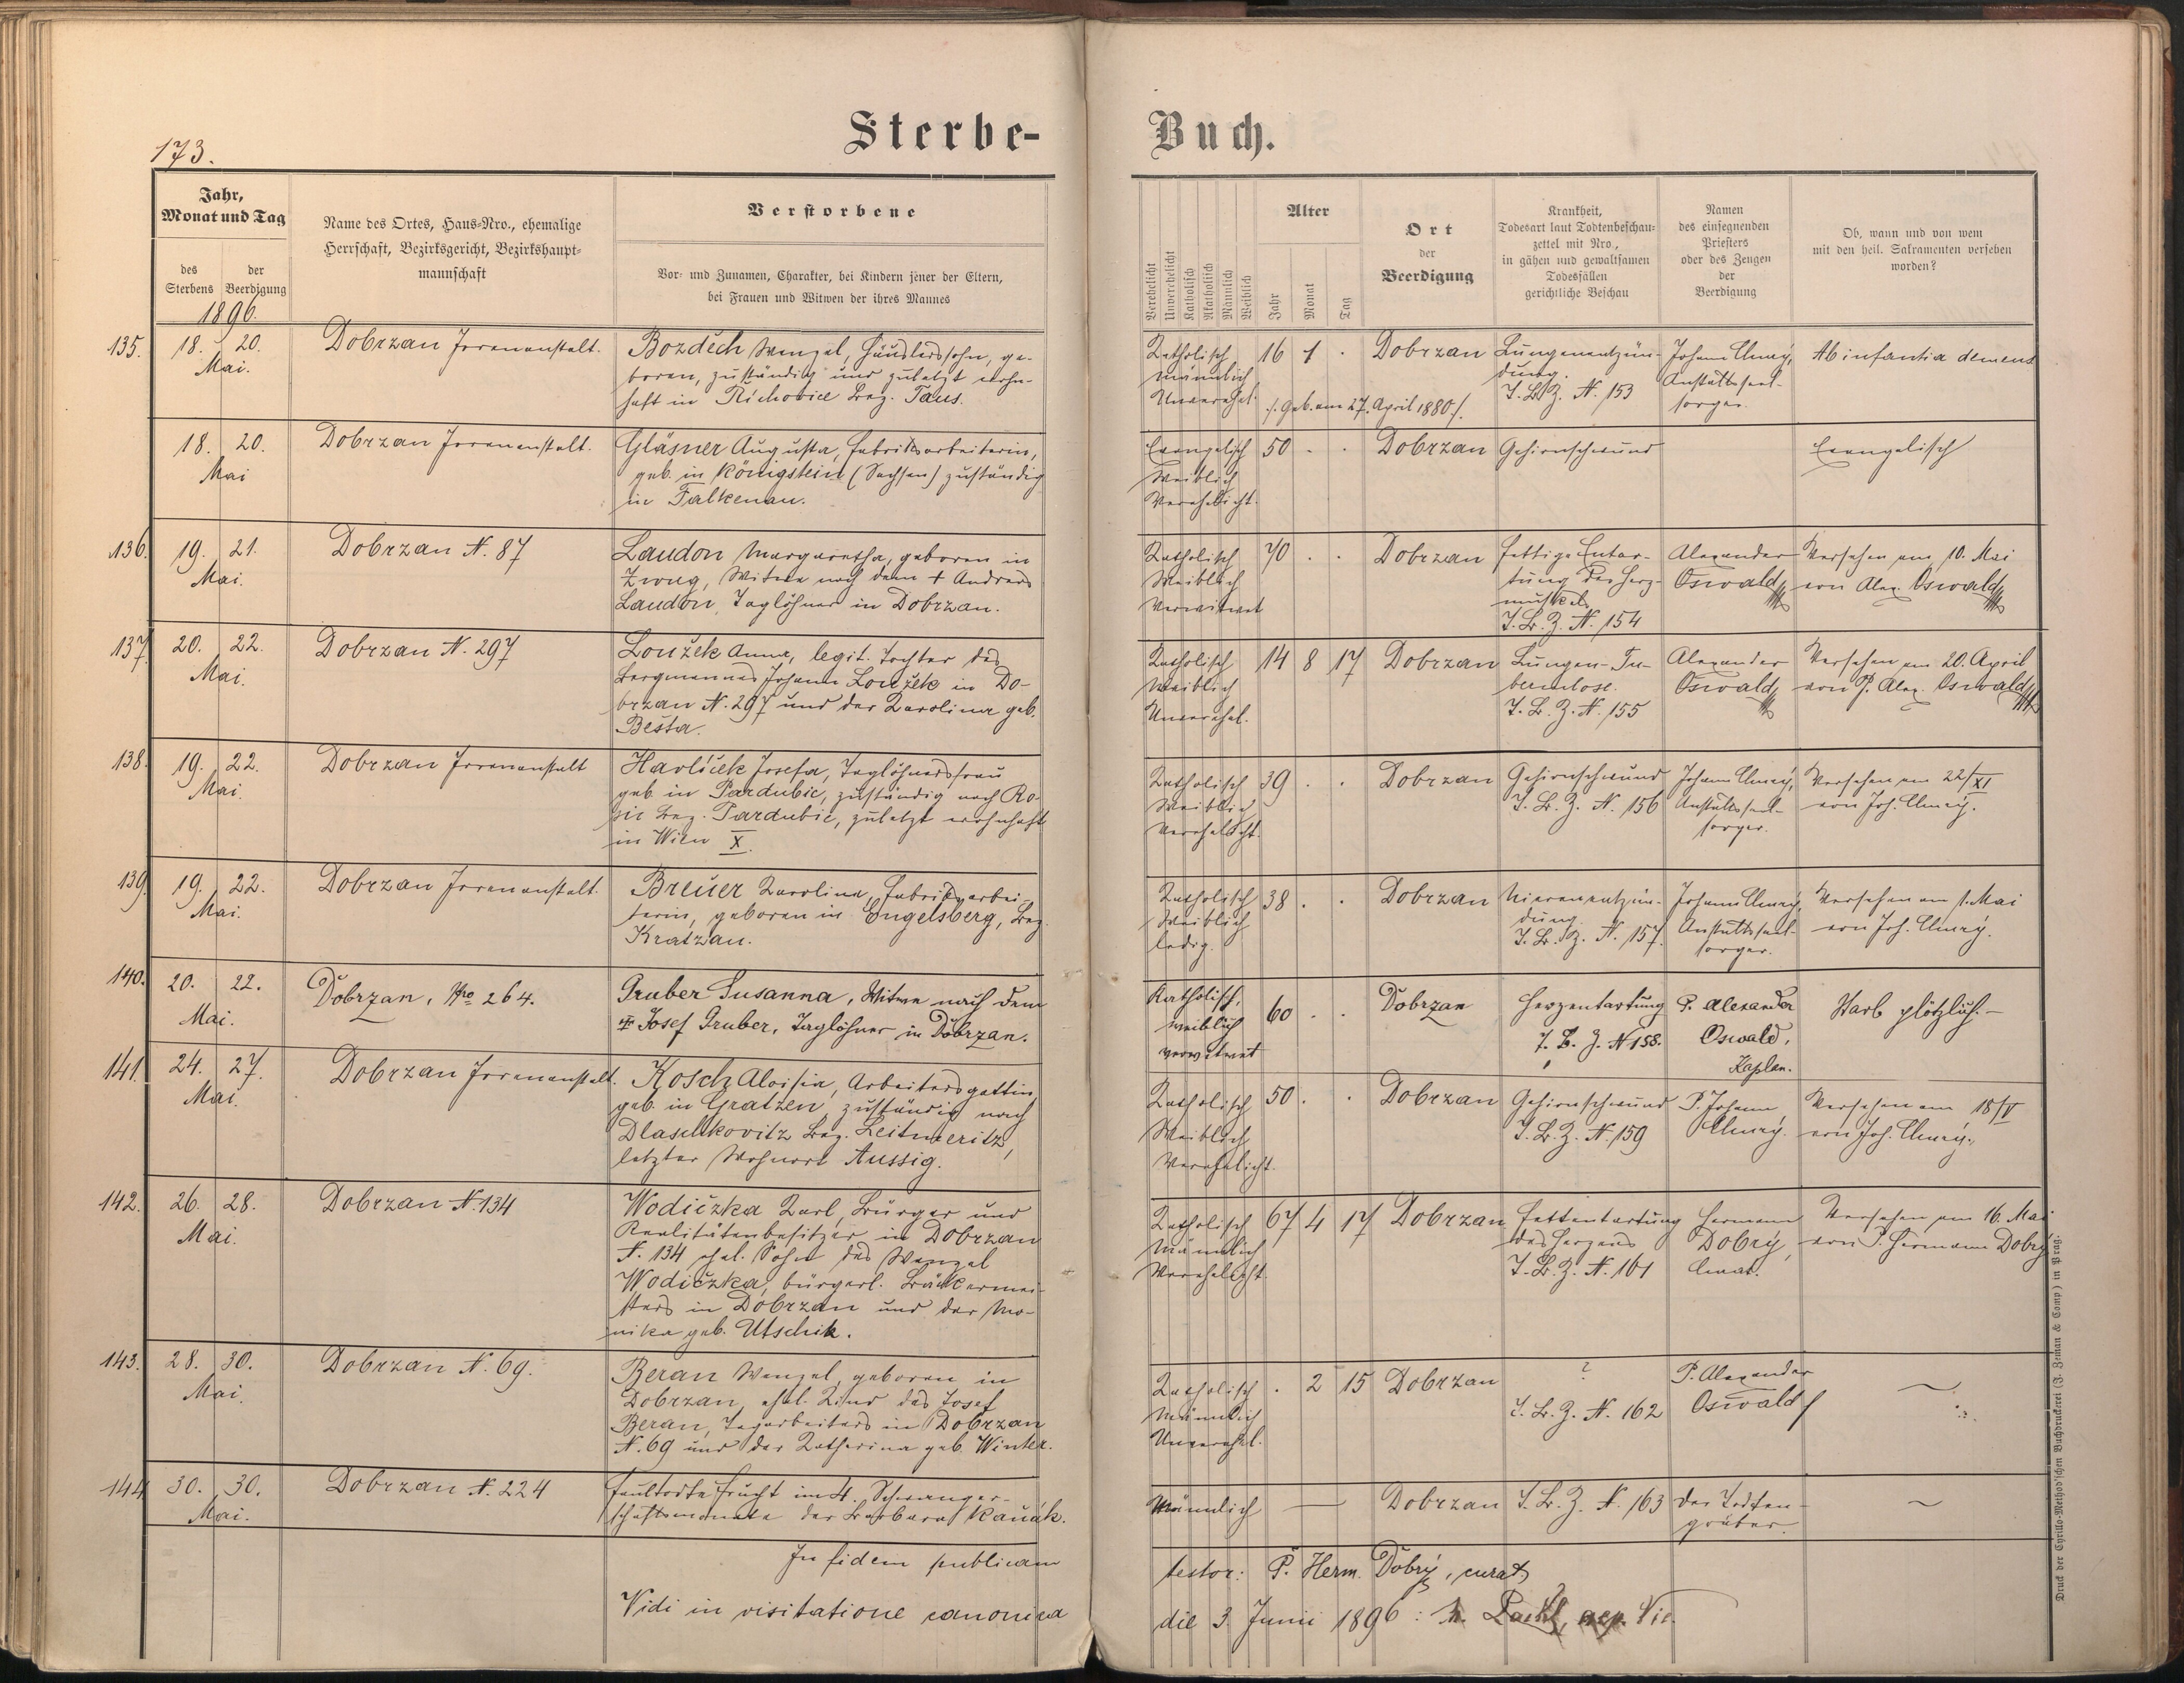 Sterbe-
Buch.
173.
Jahr,
Monat und Tag
des
Sterbens
der
Beerdigung
1896.
Name des Ortes, Haus-Nro., ehemalige
Herrschaft, Bezirksgericht, Bezirkshaupt-
mannschaft
Verstorbene
Vor- und Zunamen, Charakter, bei Kindern jener der Eltern,
bei Frauen und Witwen der ihres Mannes
Verehelicht
Unverehelicht
Katholisch
Akatholisch
Männlich
Weiblich
Alter
Jahr
Monat
Tag
Ort
der
Beerdigung
Krankheit,
Todesart laut Todtenbeschau-
zettel mit Nro.,
in gähen und gewaltsamen
Todesfällen
gerichtliche Beschau
Namen
des einsegnenden
Priesters
oder des Zeugen
der
Beerdigung
Ob, wann und von wem
mit den heil. Sakramenten versehen
worden?
135. 18. 20. Dobrzan Irrenanstalt. Bozděch Wenzel, Häuslerssohn, ge-
Mai. boren, zuständig und zuletzt wohn-
haft in Řichovice Bez. Taus.
Katholisch 16 1 . Dobrzan Lungenentzün- Johann Čluný, Ab infantia demens
männlich dung. Anstaltsseel-
Unverehel. /: Geb. am 27. April 1880 :/. T. B. Z. N. 153 sorger.
18. 20. Dobrzan Irrenanstalt. Gläsner Augusta, Fabriksarbeiterin,
Mai geb. in Königstein (Sachsen) zuständig
in Falkenau.
Evangelisch 50 . . Dobrzan Gehirnschwund Evangelisch
Weiblich
Verehelicht.
136. 19. 21. Dobrzan N. 87 Laudon Margaretha, geboren in
Mai. Zwug, Witwe nach dem + Andreas
Laudon, Taglöhner in Dobrzan.
Katholisch 70 . . Dobrzan fettige Entar- Alexander Versehen am 10. Mai
Weiblich tung des Herz- Oswald von Alex. Oswald
Verwitwet muskels
T. B. Z. N. 154
137. 20. 22. Dobrzan N. 297 Loužek Anna, legit. Tochter des
Mai. Bergmannes Johann Loužek in Do-
brzan N. 297 und der Karolina geb.
Bešta.
Katholisch 14 8 17 Dobrzan Lungen-Tu- Alexander Versehen am 20. April
Weiblich berculose. Oswald von P. Alex. Oswald
Unverehel. T. B. Z. N. 155
138. 19. 22. Dobrzan Irrenanstalt Havlíček Josefa, Taglöhnersfrau
Mai. geb. in Pardubic, zuständig nach Ro-
sic Bez. Pardubic, zuletzt wohnhaft
in Wien X.
Katholisch 39 . . Dobrzan Gehirnschwund Johann Čluný, Versehen am 22/XI
Weiblich T. B. Z. N. 156 Anstaltsseel- von Joh. Čluný.
Verehelicht. sorger.
139. 19. 22. Dobrzan Irrenanstalt. Breuer Karolina, Fabriksarbei-
Mai. terin, geboren in Engelsberg, Bez.
Kratzau.
Katholisch 38 . . Dobrzan Nierenentzün- Johann Čluný, Versehen am 1. Mai
Weiblich dung. Anstaltsseel- von Joh. Čluný.
ledig. T. B. Z. N. 157. sorger.
140. 20. 22. Dobrzan, Nro 264. Gruber Susanna, Witwe nach dem
Mai. + Josef Gruber, Taglöhner in Dobrzan.
Katholisch, 60 . . Dobrzan Herzentartung P. Alexander Starb plötzlich. —
weiblich T. B. Z. N 158. Oswald,
verwitwet Kaplan.
141. 24. 27. Dobrzan Irrenanstalt. Kosch Aloisia, Arbeitersgattin,
Mai. geb. in Gratzen, zuständig nach
Dlaschkovitz Bez. Leitmeritz,
letzter Wohnort Aussig.
Katholisch 50 . . Dobrzan Gehirnschwund P. Johann Versehen am 18/V
Weiblich T. B. Z. N. 159 Čluný. von Joh. Čluný.
Verehelicht.
142. 26. 28. Dobrzan N. 134 Wodiczka Karl, Bürger und
Mai. Realitätenbesitzer in Dobrzan
N. 134 ehel. Sohn des Wenzel
Wodiczka, bürgerl. Bäckermei-
sters in Dobrzan und der Mo-
nika geb. Utschik.
Katholisch 67 4 17 Dobrzan Fettentartung Hermann Versehen am 16. Mai
Männlich des Herzens Dobrý, von P. Hermann Dobrý
Verehelicht. T. B. Z. N. 161
143. 28. 30. Dobrzan N. 69. Beran Wenzel, geboren in
Mai. Dobrzan, ehel. Kind des Josef
Beran, Tagarbeiters in Dobrzan
N. 69 und der Katharina geb. Winter.
Katholisch . 2 15 Dobrzan ? P. Alexander
Männlich T. B. Z. N. 162 Oswald
Unverehel.
144 30. 30. Dobrzan N. 224 Faultodte Frucht im 4. Schwanger-
Mai. schaftsmonate der Barbara Kaúak.
Männlich — Dobrzan T. B. Z. N. 163 Der Todten-
gräber.
In fidem publicam
testor: P. Herm. Dobrý, curat
Vidi in visitatione canonica
die 3. Junii 1896:
Druck der Cyrillo-Method'schen Buchdruckerei (J. Zeman & Comp.) in Prag.